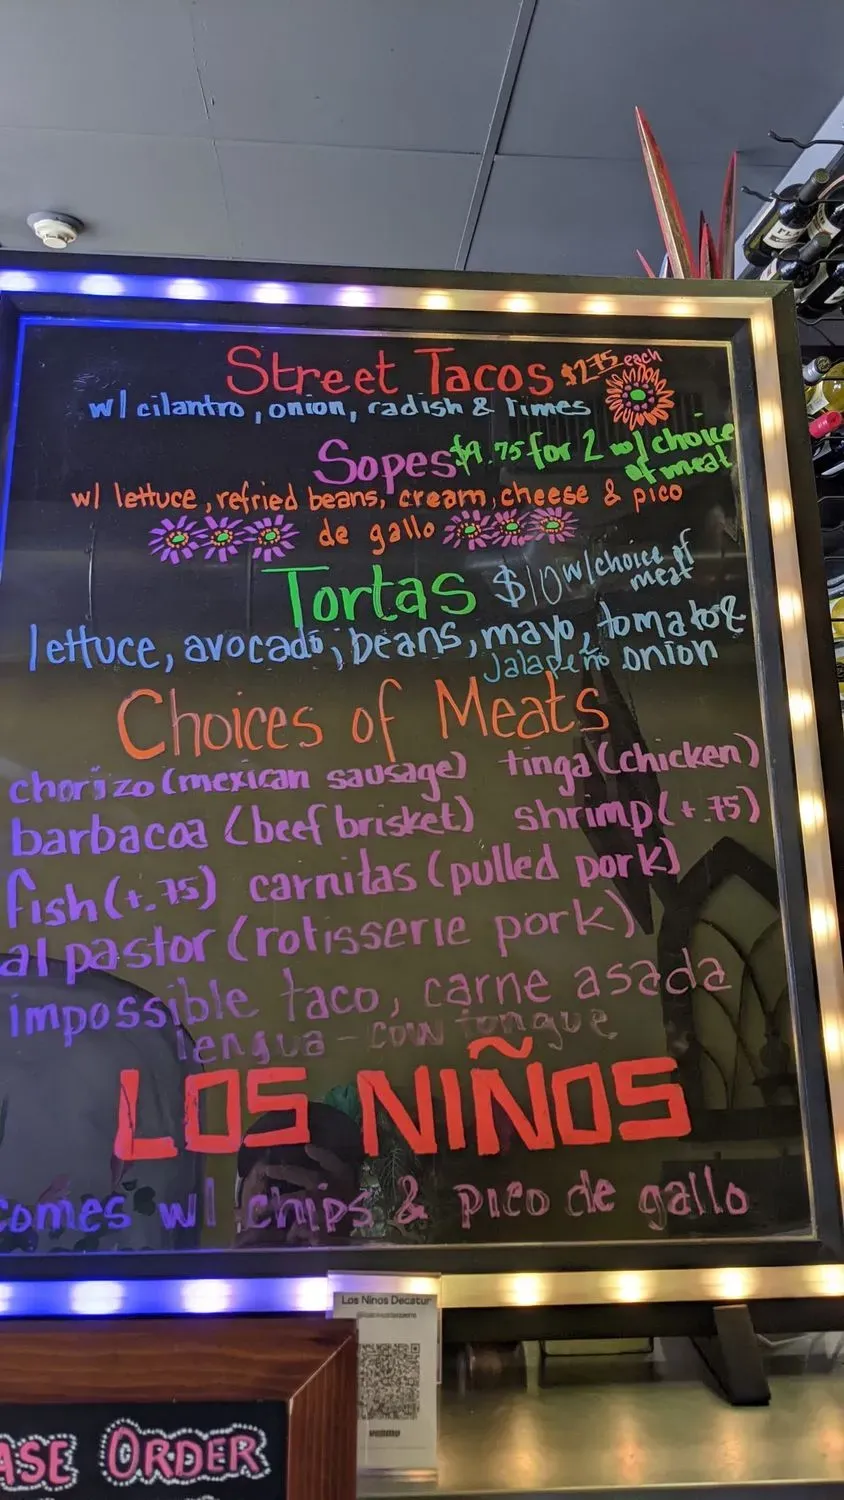 Street Tacos $2.75 each
w/ cilantro, onion, radish & limes
Sopes $9.75 for 2 w/ choice
of meat
w/ lettuce, refried beans, cream, cheese & pico
de gallo
Tortas $10 w/ choice of
meat
lettuce, avocado, beans, mayo, tomato &
Jalapeño onion
Choices of Meats
chorizo (mexican sausage) tinga (chicken)
barbacoa (beef brisket) shrimp (+.75)
fish (+.75) carnitas (pulled pork)
al pastor (rotisserie pork)
impossible taco, carne asada
lengua - cow tongue
LOS NIÑOS
comes w/ chips & pico de gallo
Los Ninos Decatur
venmo
ASE ORDER